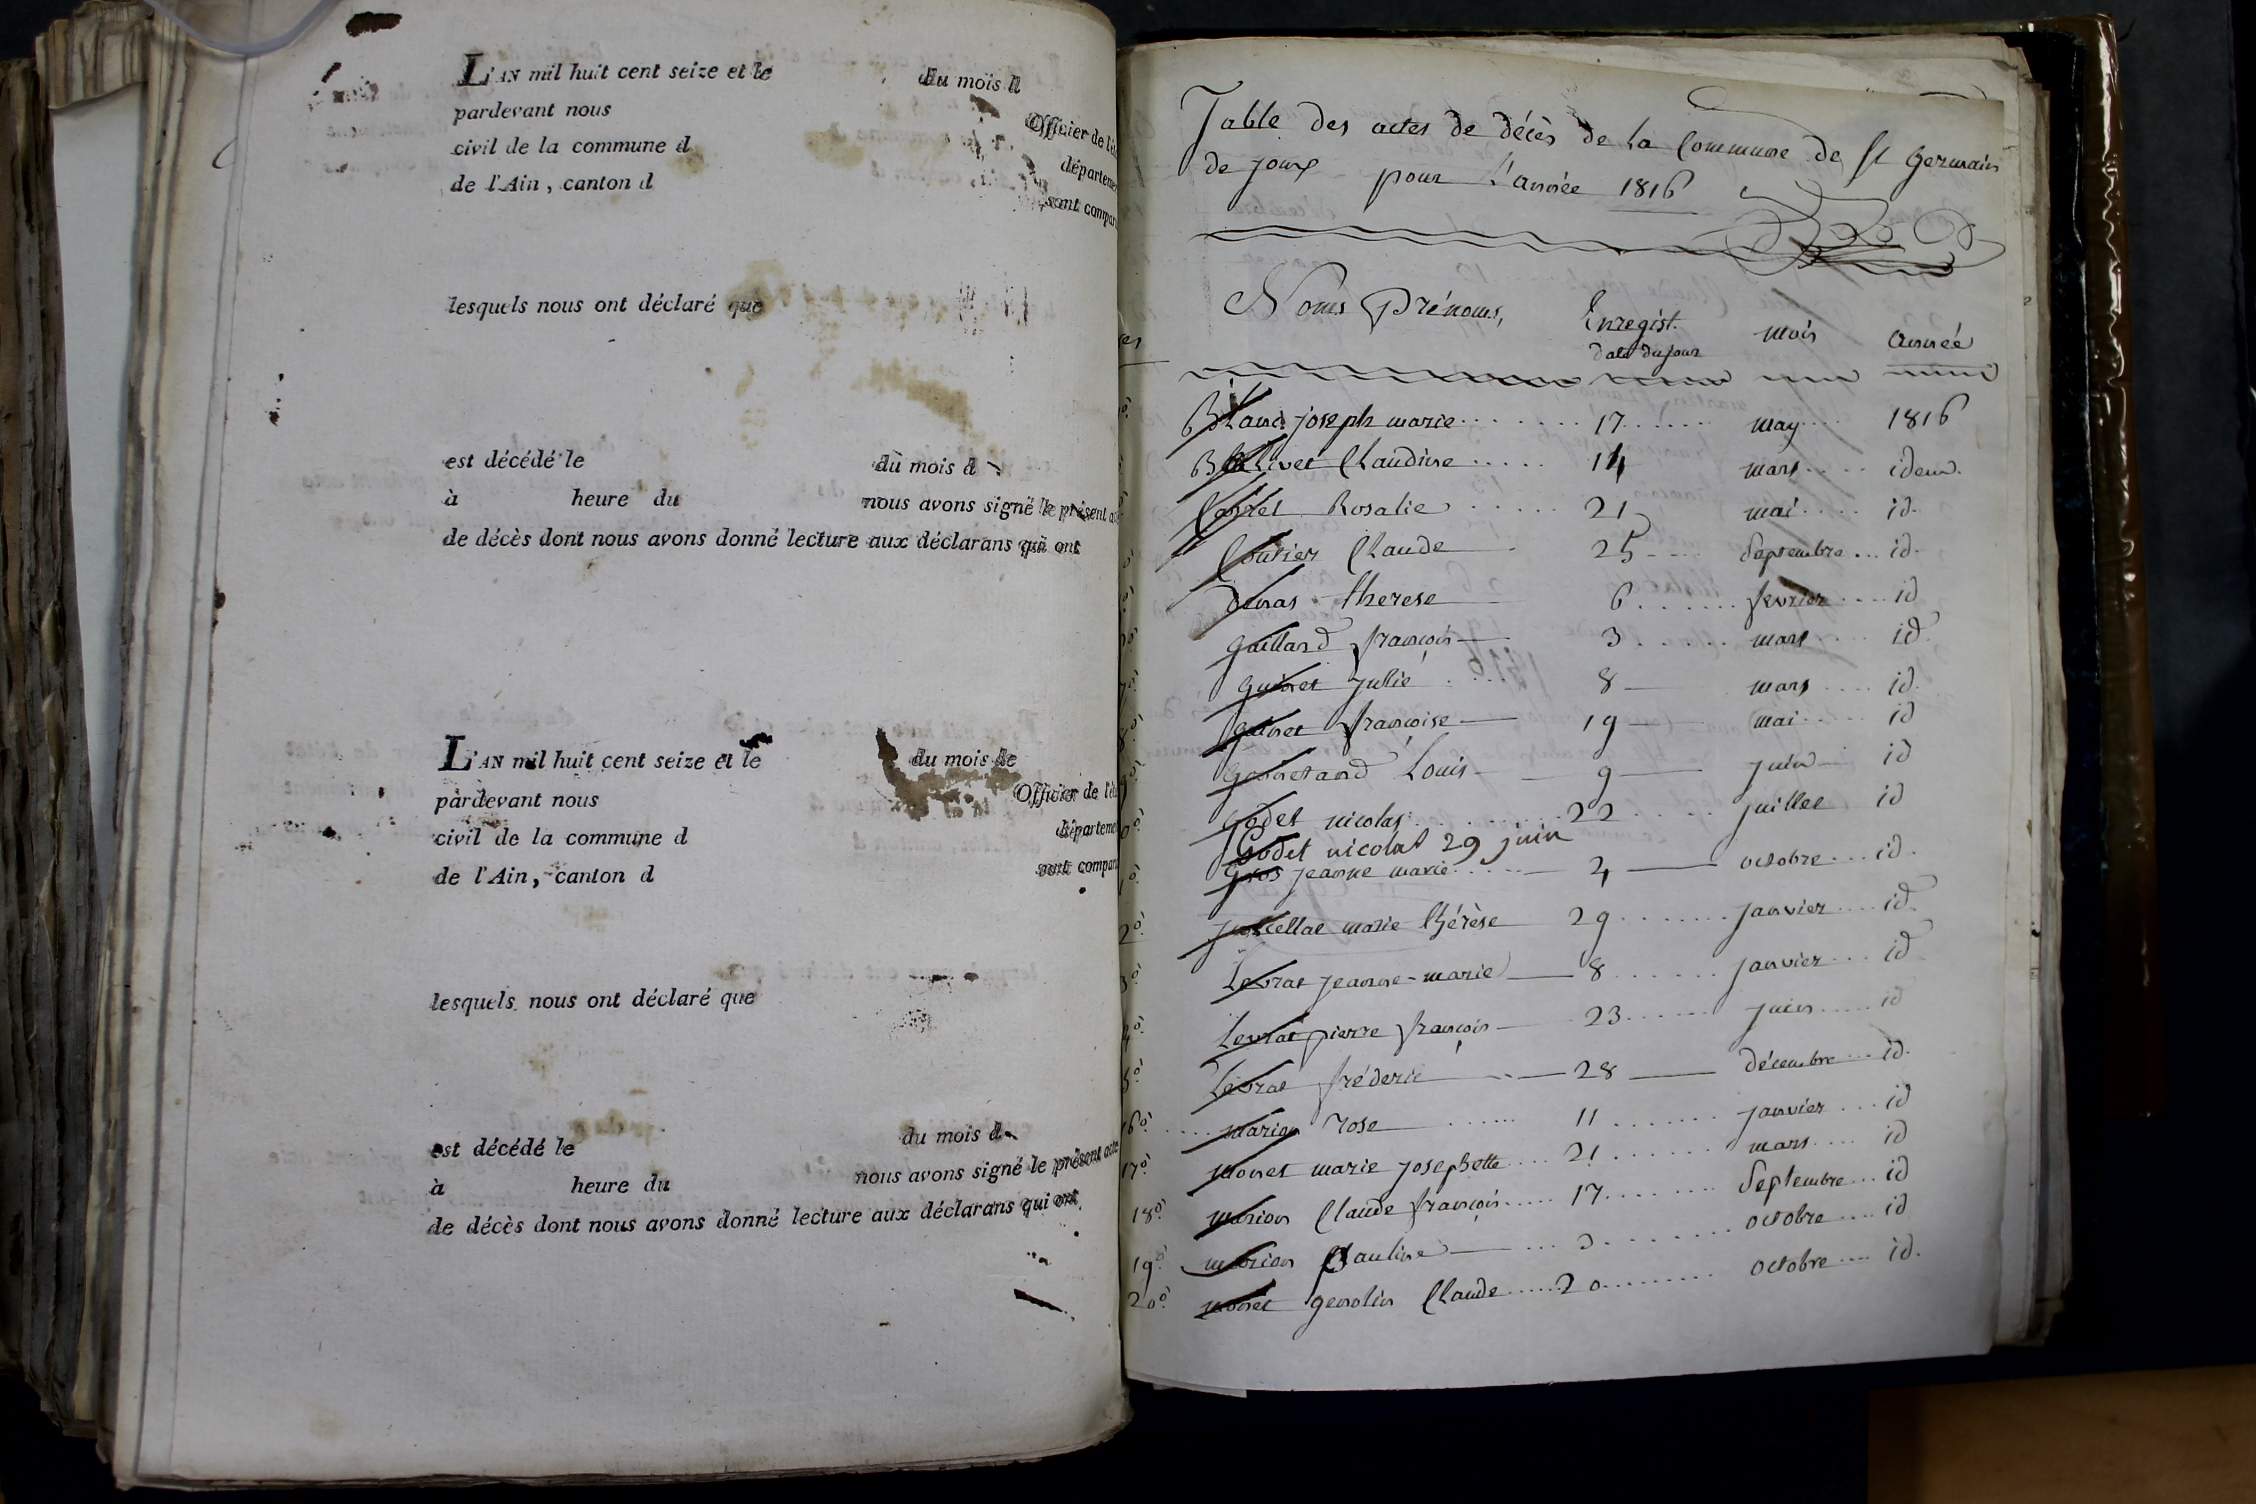 L'AN mil huit cent seize et le du mois d
pardevant nous Officier de l'é
civil de la commune d départeme
de l'Ain, canton d sont compar
lesquels nous ont déclaré que
est décédé le du mois d
à heure du nous avons signé le présent a
de décès dont nous avons donné lecture aux déclarans qui ont
L'AN mil huit cent seize et le du mois de
pardevant nous Officier de l'é
civil de la commune d départeme
de l'Ain, canton d sont compar
lesquels nous ont déclaré que
est décédé le du mois d
à heure du nous avons signé le présent acte
de décès dont nous avons donné lecture aux déclarans qui ont
Table des actes de décès de la Commune de St Germain
de joux pour l'année 1816
Noms Prénoms, Enregist. mois année
date du jour
Blanc joseph marie 17 may 1816
Claudine 14 mars idem.
Rosalie 21 mai id.
Coutier Claude 25 Septembre id.
therese 6 fevrier id
gaillard françois 3 mars id.
guinet Julie 8 mars id.
guinet françoise 19 mai id
Louis 9 juin id
godet nicolas 22 juillet id
Godet nicolas 29 juin
gros jeanne marie 4 octobre id.
marie thérèse 29 janvier id.
Levrat jeanne-marie 8 janvier id
Levrat pierre françois 23 juin id
Levrat fréderic 28 décembre id.
16° marion rose 11 janvier id
17° monet marie josephette 21 mars id
18° marion Claude françois 17 Septembre id
19° marion Pauline octobre id
20° monet genolin Claude 20 octobre id.